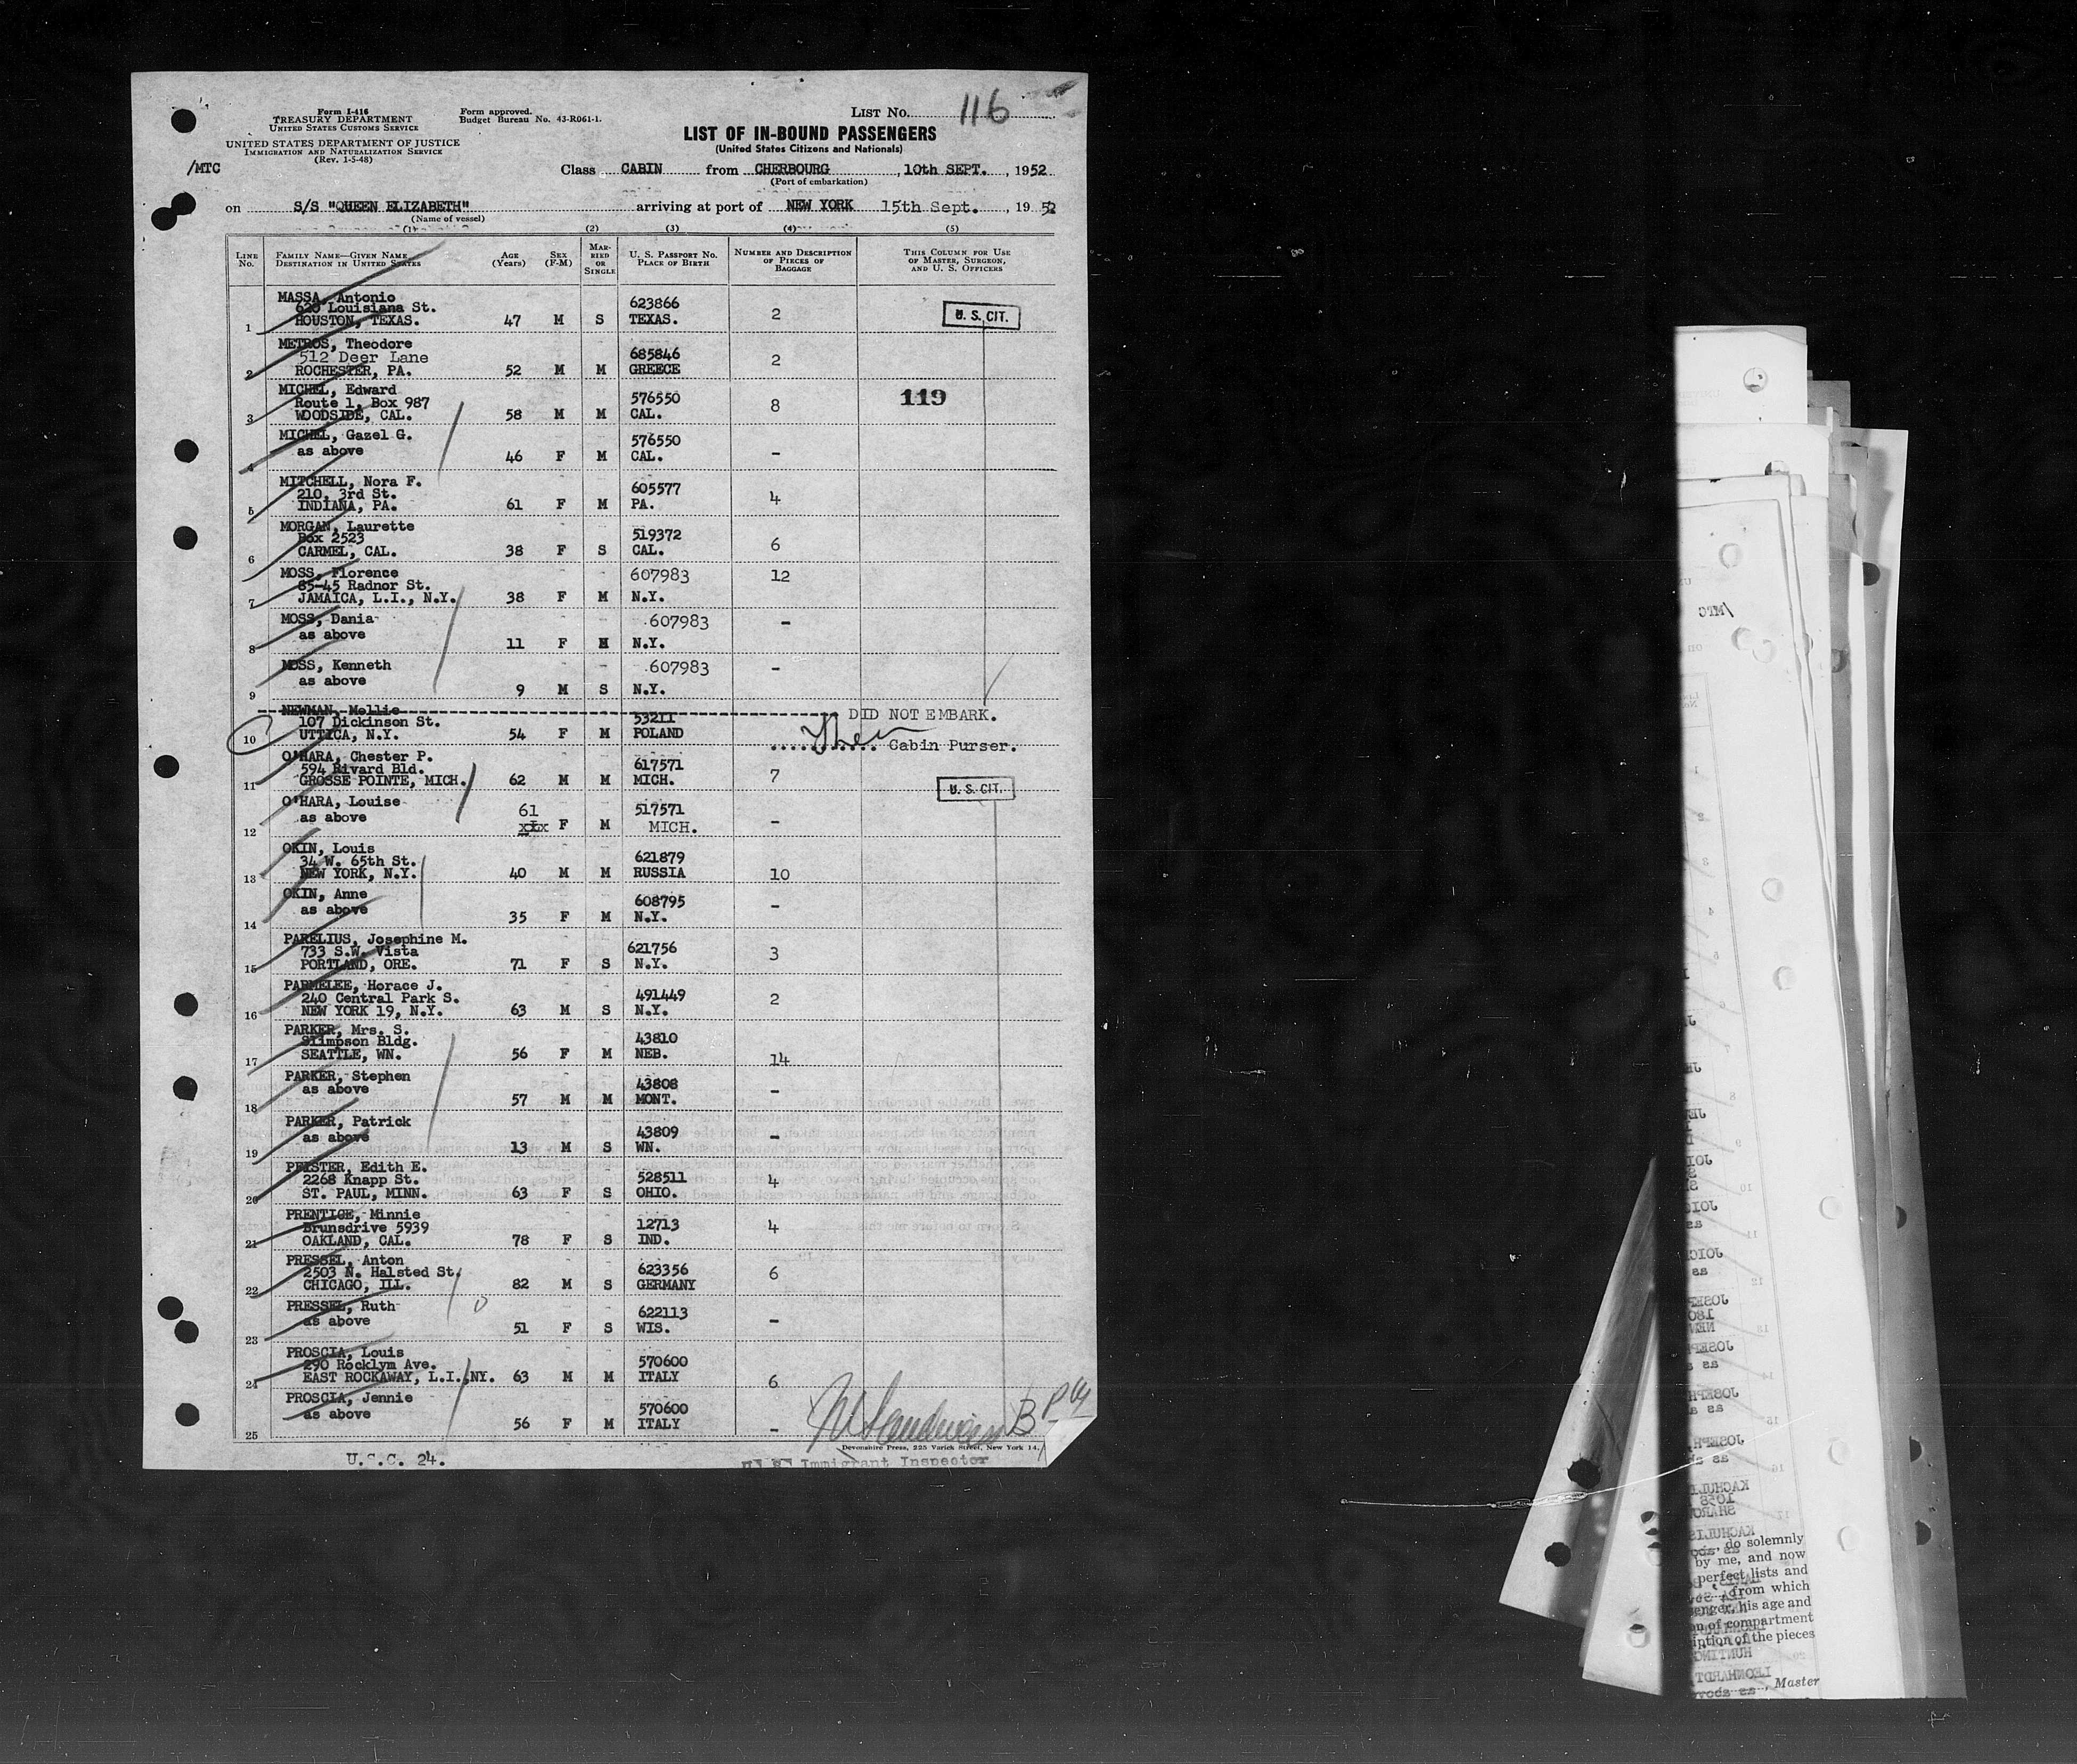 Form I-416
TREASURY DEPARTMENT
UNITED STATES CUSTOMS SERVICE
UNITED STATES DEPARTMENT OF JUSTICE
IMMIGRATION AND NATURALIZATION SERVICE
(Rev. 1-5-48)
Form approved.
Budget Bureau No. 43-R061-1.
LIST No. 116
LIST OF IN-BOUND PASSENGERS
(United States Citizens and Nationals)
/MTC
Class CABIN from CHERBOURG , 10th SEPT. , 1952
(Port of embarkation)
on S/S "QUEEN ELIZABETH" arriving at port of NEW YORK 15th Sept. , 1952
(Name of vessel)
(1) (2) (3) (4) (5)
LINE No. FAMILY NAME—GIVEN NAME DESTINATION IN UNITED STATES AGE (Years) SEX (F-M) MARRIED OR SINGLE U. S. PASSPORT NO. PLACE OF BIRTH NUMBER AND DESCRIPTION OF PIECES OF BAGGAGE THIS COLUMN FOR USE OF MASTER, SURGEON, AND U. S. OFFICERS
MASSA, Antonio 623866
620 Louisiana St. 2 U. S. CIT.
1 HOUSTON, TEXAS. 47 M S TEXAS.
METROS, Theodore 685846
512 Deer Lane 2
2 ROCHESTER, PA. 52 M M GREECE
MICHEL, Edward 576550
Route 1, Box 987 8 119
3 WOODSIDE, CAL. 58 M M CAL.
MICHEL, Gazel G. 576550
4 as above 46 F M CAL. -
MITCHELL, Nora F. 605577
210, 3rd St. 4
5 INDIANA, PA. 61 F M PA.
MORGAN, Laurette 519372
Box 2523 6
6 CARMEL, CAL. 38 F S CAL.
MOSS, Florence 607983 12
85-45 Radnor St.
7 JAMAICA, L.I., N.Y. 38 F M N.Y.
MOSS, Dania 607983 -
8 as above 11 F M N.Y.
MOSS, Kenneth 607983 -
9 as above 9 M S N.Y.
NEWMAN, Mollie 53211 DID NOT EMBARK.
107 Dickinson St.
10 UTTICA, N.Y. 54 F M POLAND Cabin Purser.
O'HARA, Chester P. 617571
594 Rivard Bld. 7
11 GROSSE POINTE, MICH. 62 M M MICH. U. S. CIT.
O'HARA, Louise 61 517571
12 as above xix F M MICH. -
OKIN, Louis 621879
34 W. 65th St.
13 NEW YORK, N.Y. 40 M M RUSSIA 10
OKIN, Anne 608795
14 as above 35 F M N.Y. -
PARELIUS, Josephine M. 621756
733 S.W. Vista 3
15 PORTLAND, ORE. 71 F S N.Y.
PARMELEE, Horace J. 491449
240 Central Park S. 2
16 NEW YORK 19, N.Y. 63 M S N.Y.
PARKER, Mrs. S. 43810
Stimpson Bldg.
17 SEATTLE, WN. 56 F M NEB. 14
PARKER, Stephen 43808
18 as above 57 M M MONT. -
PARKER, Patrick 43809
19 as above 13 M S WN. -
PFISTER, Edith E. 528511
2268 Knapp St. 4
20 ST. PAUL, MINN. 63 F S OHIO.
PRENTICE, Minnie 12713
Brunsdrive 5939 4
21 OAKLAND, CAL. 78 F S IND.
PRESSEL, Anton 623356
2503 N. Halsted St. 6
22 CHICAGO, ILL. 82 M S GERMANY
PRESSEL, Ruth 622113
23 as above 51 F S WIS. -
PROSCIA, Louis 570600
290 Rocklym Ave.
24 EAST ROCKAWAY, L.I.,NY. 63 M M ITALY 6
PROSCIA, Jennie 570600
25 as above 56 F M ITALY -
Devonshire Press, 225 Varick Street, New York 14,
U.S.C. 24.
U.S. Immigrant Inspector
/MTC
do solemnly
by me, and now
perfect lists and
from which
his age and
on of compartment
of the pieces
, Master